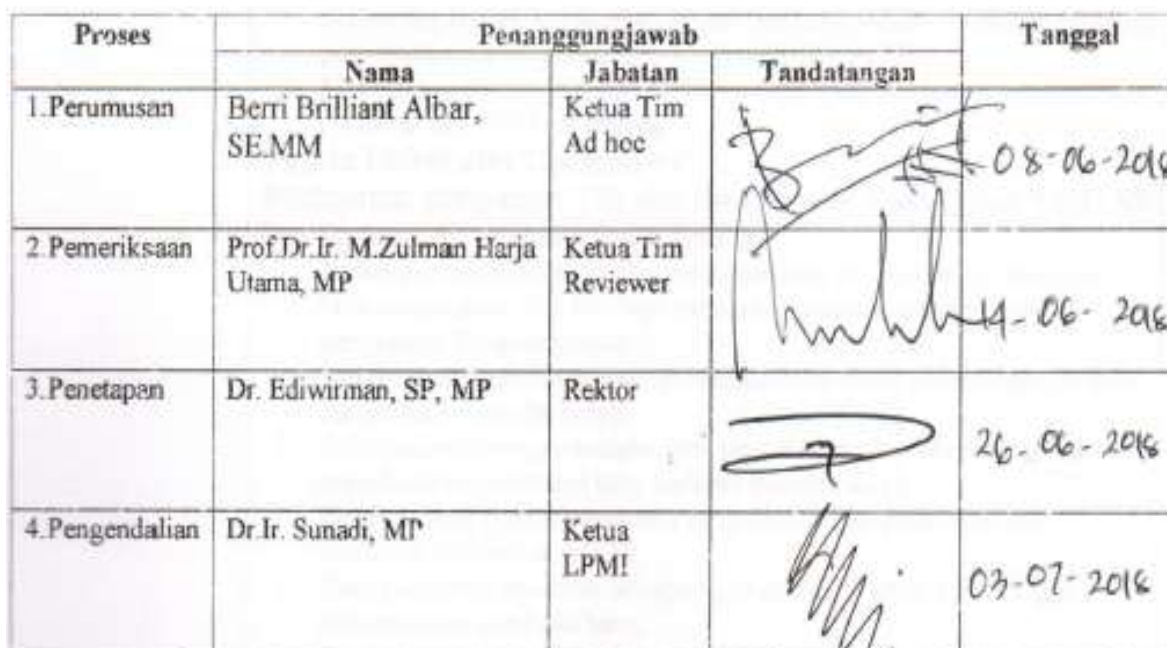 Proses Penanggungjawab Tanggal
Nama Jabatan Tandatangan
1.Perumusan Berri Brilliant Albar, Ketua Tim
SE.MM Ad hoc
08-06-2018
2.Pemeriksaan Prof.Dr.Ir. M.Zulman Harja Ketua Tim
Utama, MP Reviewer
14-06-2018
3.Penetapan Dr. Ediwirman, SP, MP Rektor
26-06-2018
4.Pengendalian Dr.Ir. Sunadi, MP Ketua
LPMI
03-07-2018